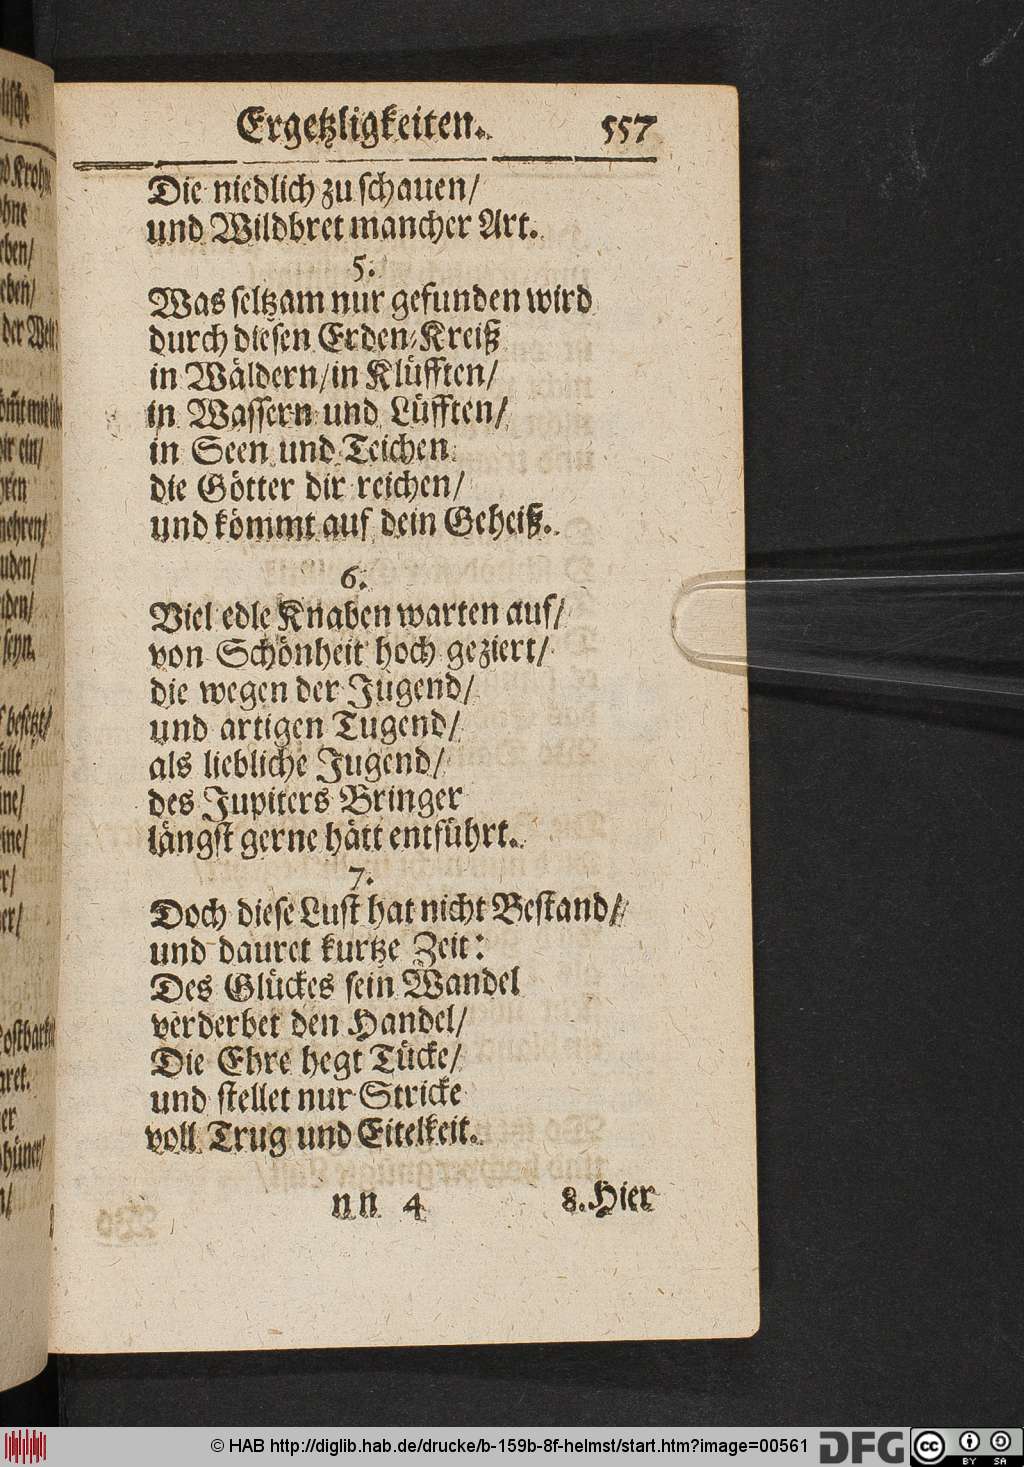 Ergetzligkeiten. 557
Die niedlich zu schauen/
und Wildbret mancher Art.
5.
Was seltzam nur gefunden wird
durch diesen Erden-Kreiß
in Wäldern/in Klüfften/
in Wassern und Lüfften/
in Seen und Teichen
die Götter dir reichen/
und kömmt auf dein Geheiß.
6.
Viel edle Knaben warten auf/
von Schönheit hoch geziert/
die wegen der Jugend/
und artigen Tugend/
als liebliche Jugend/
des Jupiters Bringer
längst gerne hätt entführt.
7.
Doch diese Lust hat nicht Bestand/
und dauret kurtze Zeit:
Des Glückes sein Wandel
verderbet den Handel/
Die Ehre hegt Tücke/
und stellet nur Stricke
voll Trug und Eitelkeit.
nn 4 8. Hier
© HAB http://diglib.hab.de/drucke/b-159b-8f-helmst/start.htm?image=00561 DFG cc BY SA